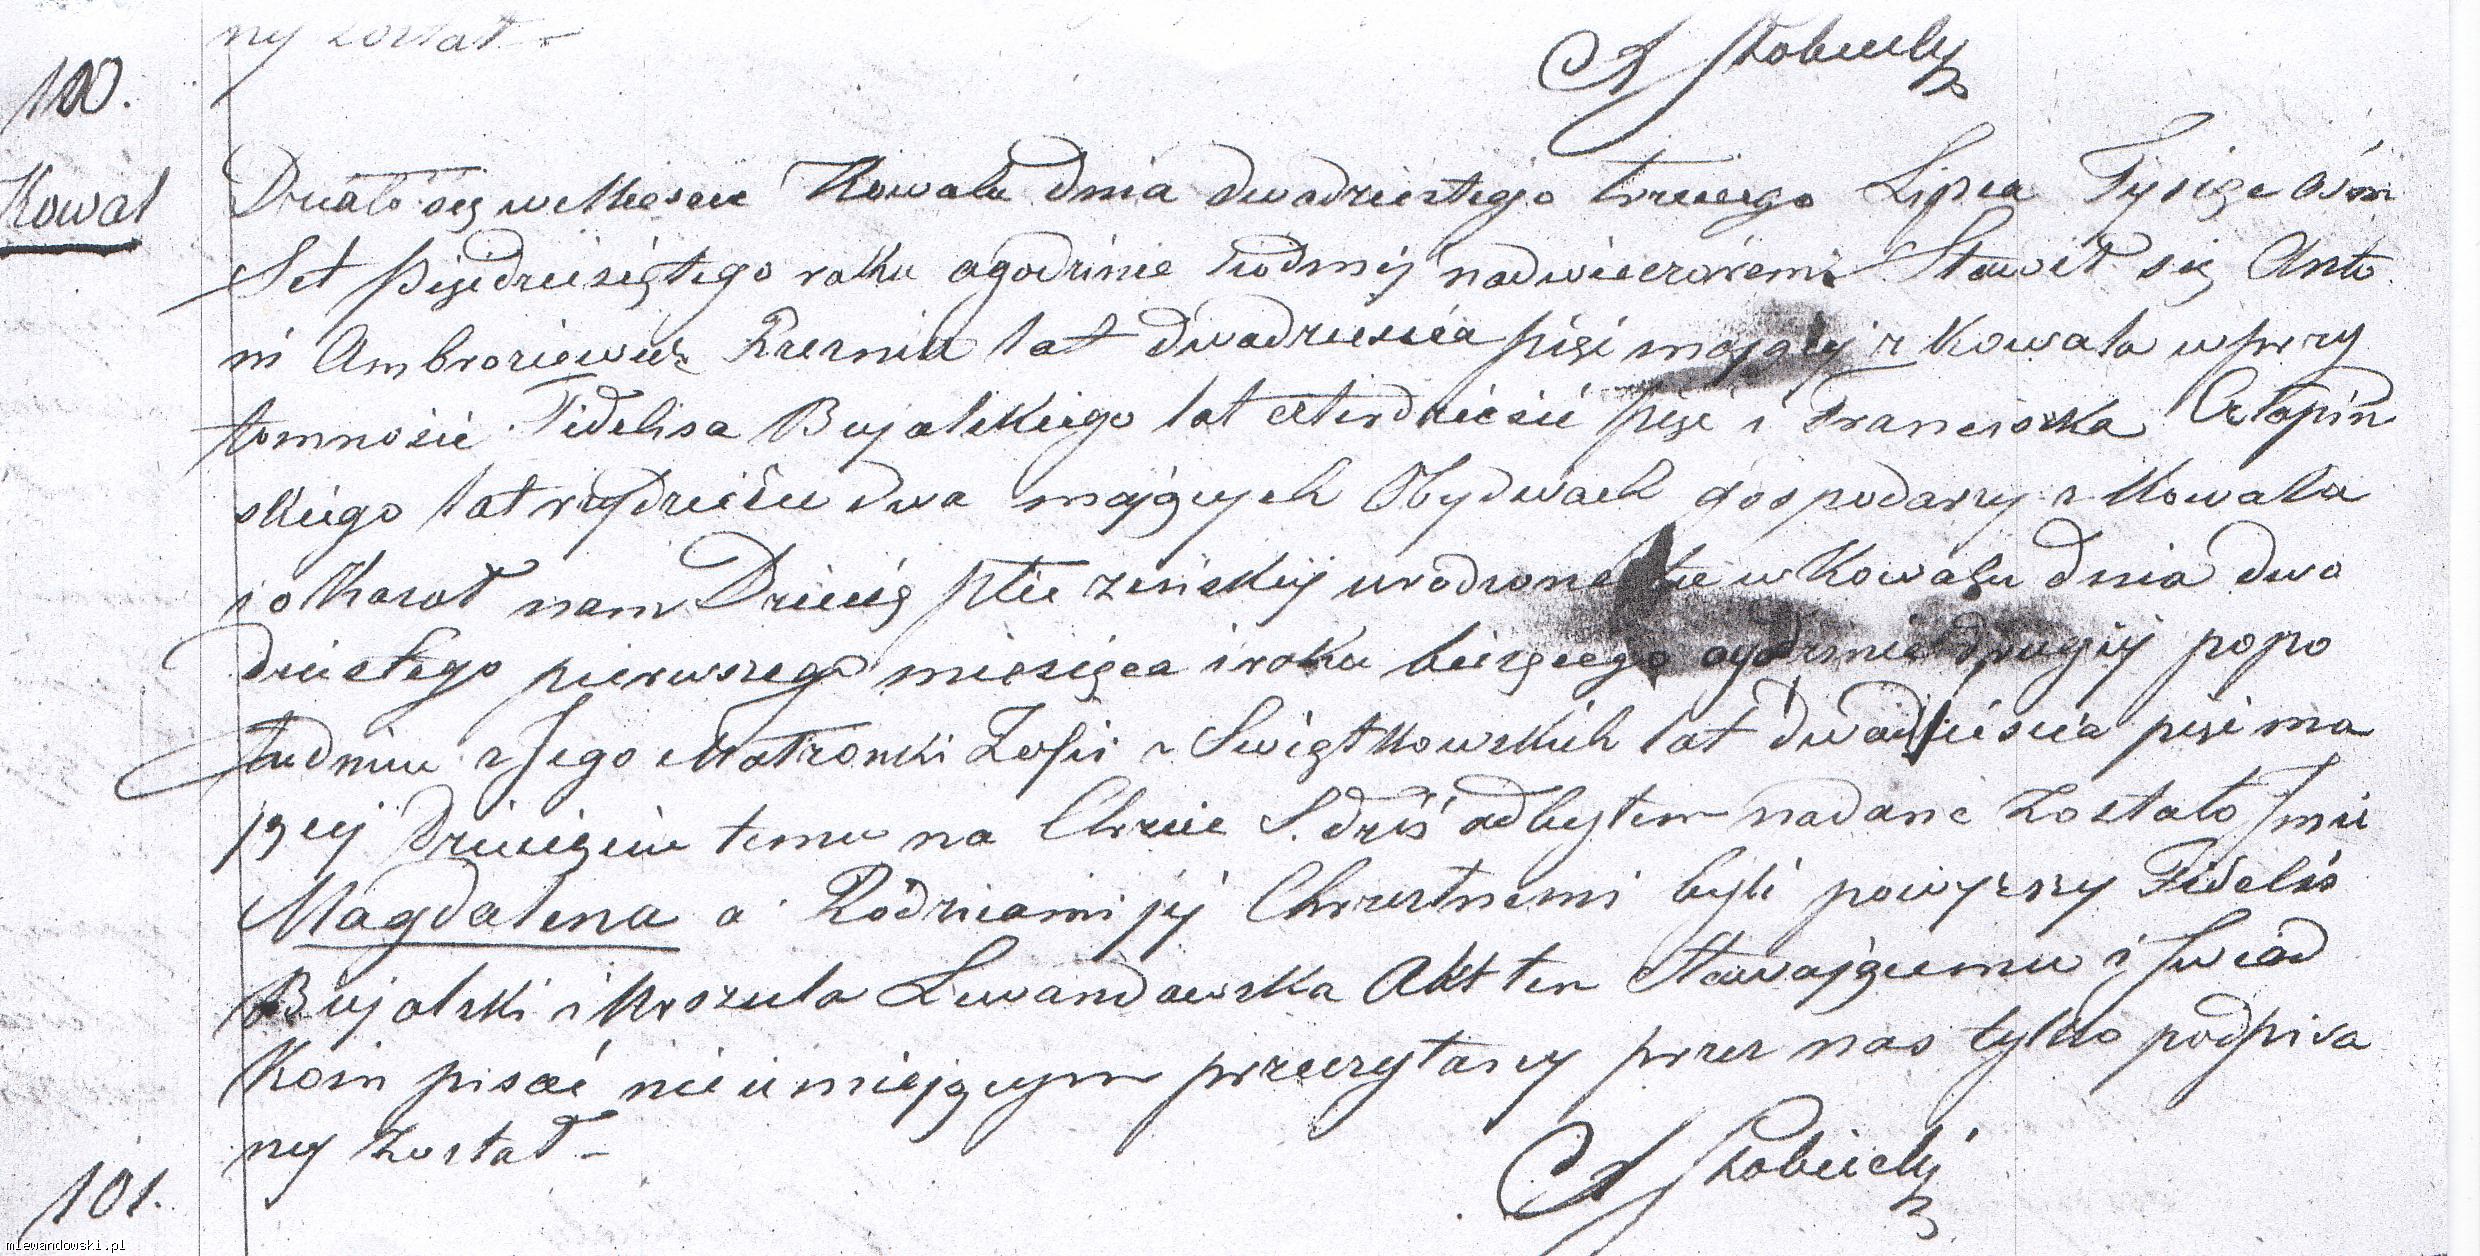 ny został –
A Skobiecky
100.
Kowal
Działo się w Mieście Kowalu dnia dwudziestego trzeciego Lipca Tysiąc Ośm
Set piędziesiątego roku o godzinie siódmej nadwieczorem Stawił się Anto
ni Ambroziewicz lat dwadzieścia pięć mający z Kowala w przy
tomności Fidelisa Bujalskiego lat czterdzieści pięć i Franciszka Człapiń
skiego lat trzydzieści dwa mających Obydwach gospodarzy z Kowala
i okazał nam Dziecię płci żeńskiej urodzone tu w Kowalu dnia dwo
dziestego pierwszego miesiąca i roku bieżącego o godzinie drugiej popo
łudniu z Jego Małżonki Zofii z Świątkowskich lat dwadzieścia pięć ma
jącej Dziecięciu temu na Chrzcie S. dziś odbytem nadane zostało Imie
Magdalena a Rodzicami jej Chrzestnemi byli powyższy Fidelis
Bujalski i Urszula Lewandowska Akt ten stawającemu i świad
kom pisać nieumiejącym przeczytany przez nas tylko podpisa
ny został –
A Skobiecky
101.
mlewandowski.pl